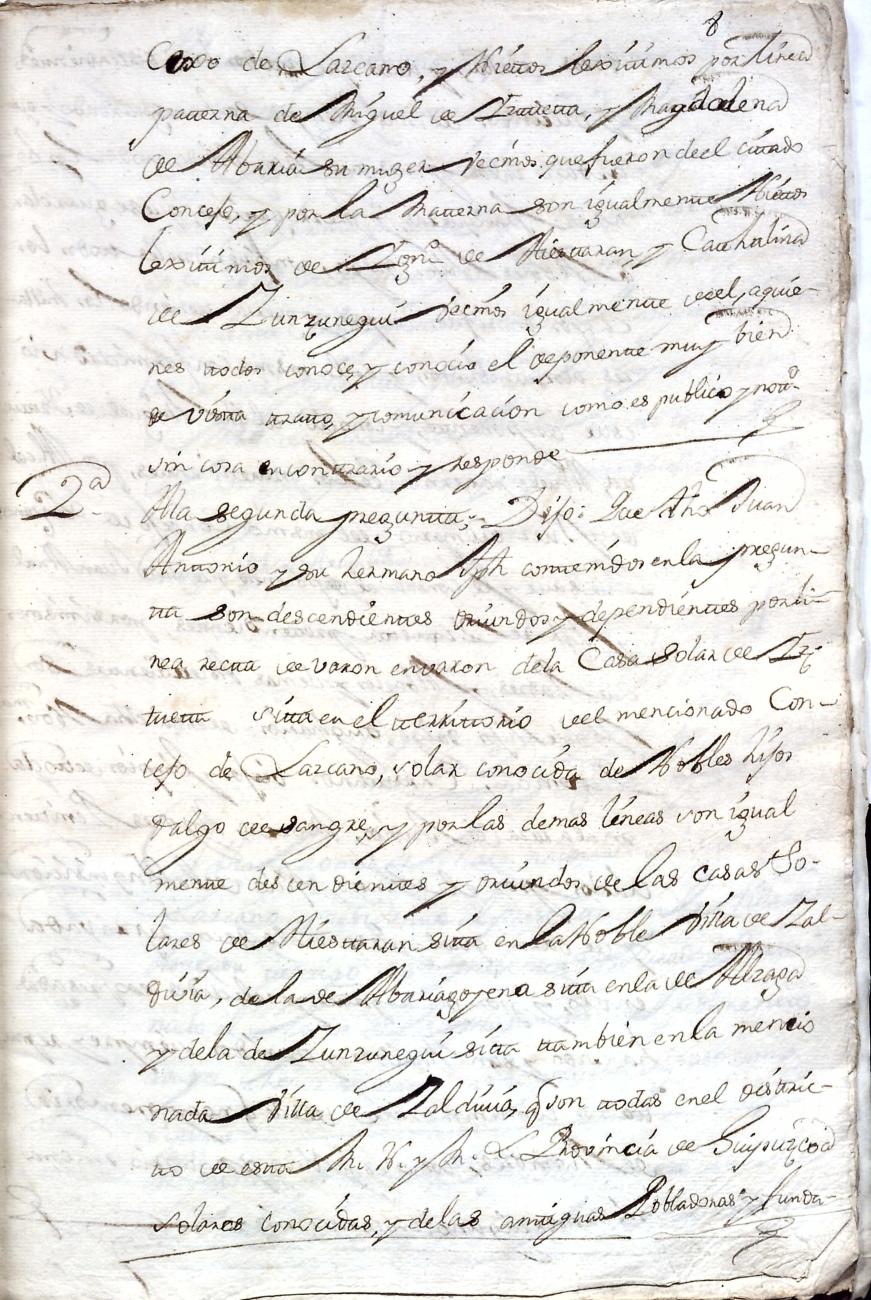 8
Cexo de Lazcano, y Niettos lexitimos por línea
patterna de Miguel de Irttuetta, y Magdalena
de Abaria su muger Vecinos que fueron de el cittado
Concejo, y por la Matterna son igualmentte Niettos
lexitimos de de Aiesttaran y Cathalina
de Zunzunegui Vecinos igualmente de el, a quie-
nes ttodos conoce, y conocio el deponente muy bien
de vistta tratto, y comunicacion como es publico y nottº
sin cosa en conttrario y responde
2ª
A la segunda preguntta; Dijo: Que dhos Juan
Anttonio y su hermano Jph conttenidos en la pregun-
tta son descendienttes oriundos y dependienttes por li-
nea rectta de varon en varon de la Casa solar de Ir-
tuetta sitta en el tterrittorio de el mencionado Con-
cejo de Lazcano, solar conocida de Nobles hijos
dalgo de sangre, y por las demas líneas son igual
mente descendientes y oriundos de las casas So-
lares de Aiesttaran sitta en la Noble Villa de Zal-
divia, de la de Abariagoyena sitta en la de Alzaga
y de la de Zunzunegui sitta ttambien en la mencio
nada Villa de Zaldivia, q son ttodas en el distric-
to de esta M. N. y M. L. Provincia de Guipuzcoa
solares conocidas, y de las antiguas Pobladoras y funda-